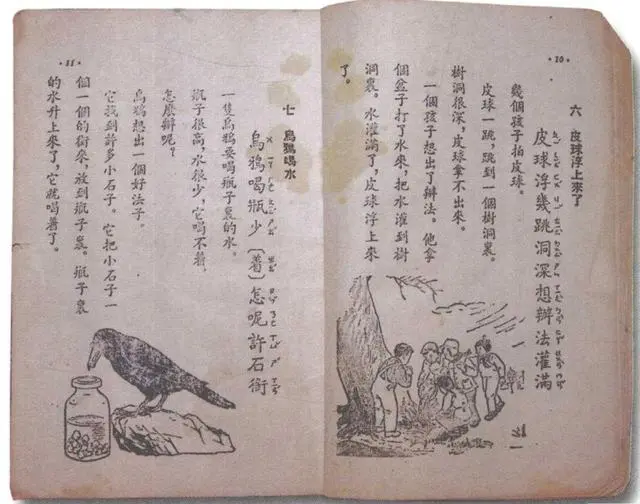 ·10·
六 皮球浮上來了
皮球浮幾跳洞深想辦法灌滿
幾個孩子拍皮球。
皮球一跳,跳到一個樹洞裏。
樹洞很深,皮球拿不出來。
一個孩子想出了辦法。他拿
個盆子打了水來,把水灌到樹
洞裏。水灌滿了,皮球浮上來
了。
·11·
七 烏鴉喝水
烏鴉喝瓶少〔着〕怎呢許石銜
一隻烏鴉要喝瓶子裏的水。
瓶子很高,水很少,它喝不着。
怎麼辦呢?
烏鴉想出一個好法子。
它找到許多小石子。它把小石子一
個一個的銜來,放到瓶子裏。瓶子裏
的水升上來了,它就喝着了。